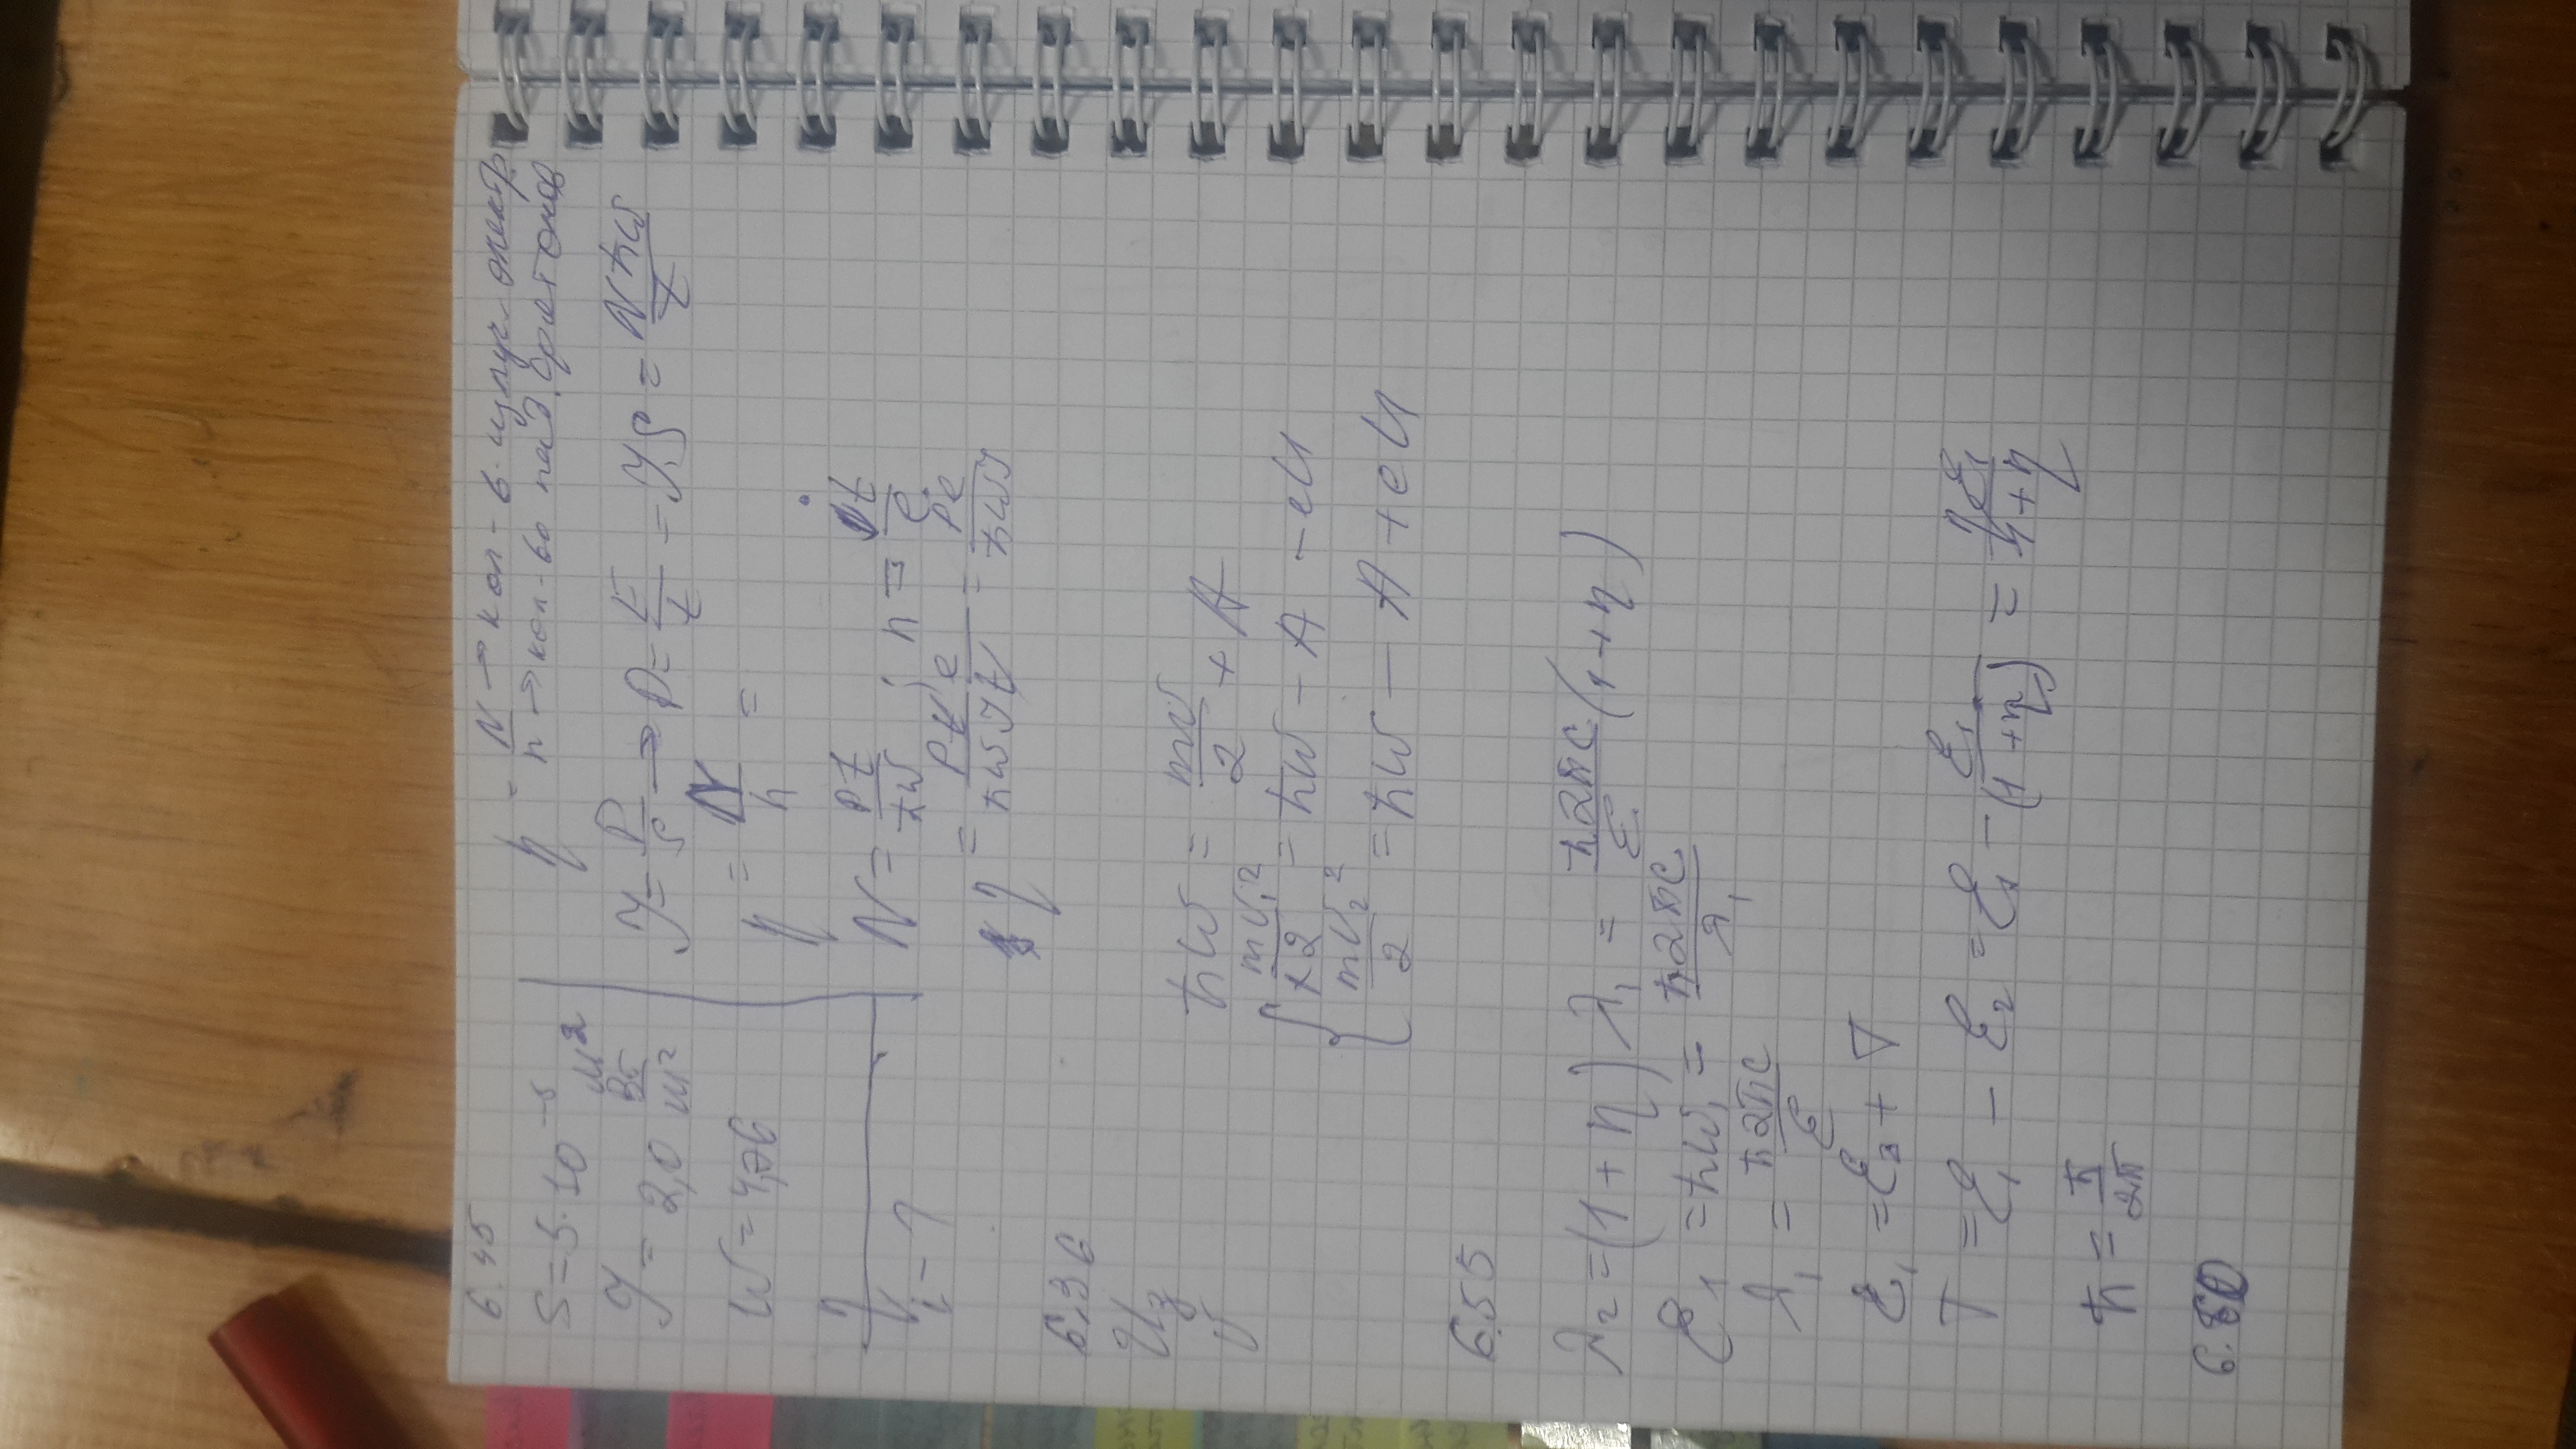 6.45
S = 5·10⁻⁵ м²
J = 2,0 Вт/м²
W =
η
i - ?
η = N/n
N → кол-в. излуч. электр
n → кол-во пад. фотонов
J = P/S → P = E/t = J·S = Nħω/t
η = N/n =
N = Pt/ħω ; n = it/e
η = Pte/ħωJt = Pe/ħωJ
6.36
Uз
υ
ħω = mv/2 + A
mυ₁²/2 = ħω - A - eU
mυ₂²/2 = ħω - A + eU
6.55
λ₂ = (1 + η) λ₁ = ħ2πc/ε (1 + η)
ε₁ = ħω₁ = ħ2πc/λ₁
λ₁ = ħ2πc/ε
ε₁ = ε₂ + T
T = ε₁ - ε₂ = ε₁ - ε₁/(1 + η) = ηε₁/1+η
ħ = ħ/2π